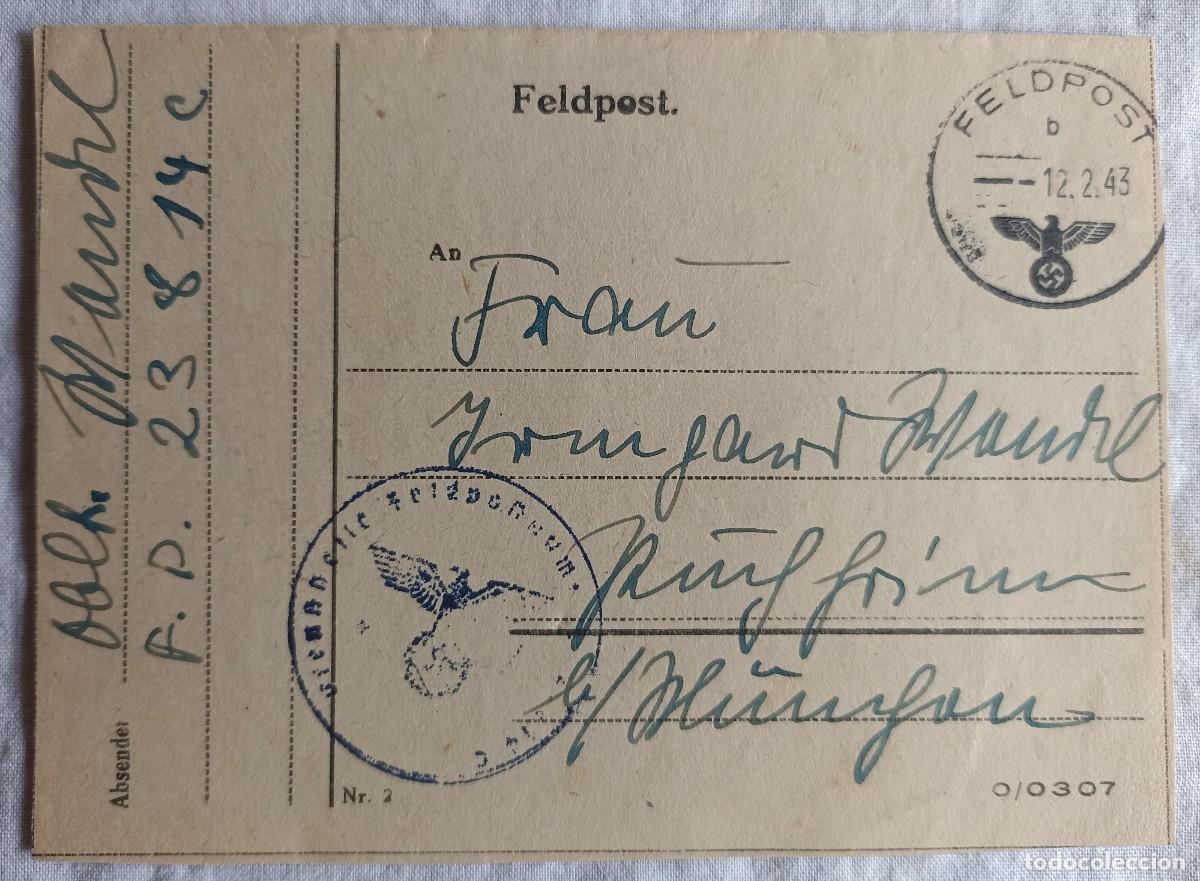 Feldpost.
FELDPOST
b
-12.2.43
An
Frau
Irmgard Mandl
Puchheim
b/München
Absender
Mandl
F. P. 23814 C
Nr. 2
0/0307
todocoleccion